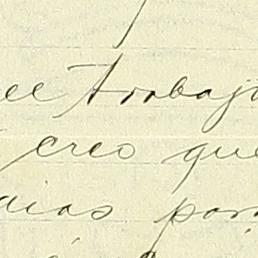 el trabajo
creo que
dias para